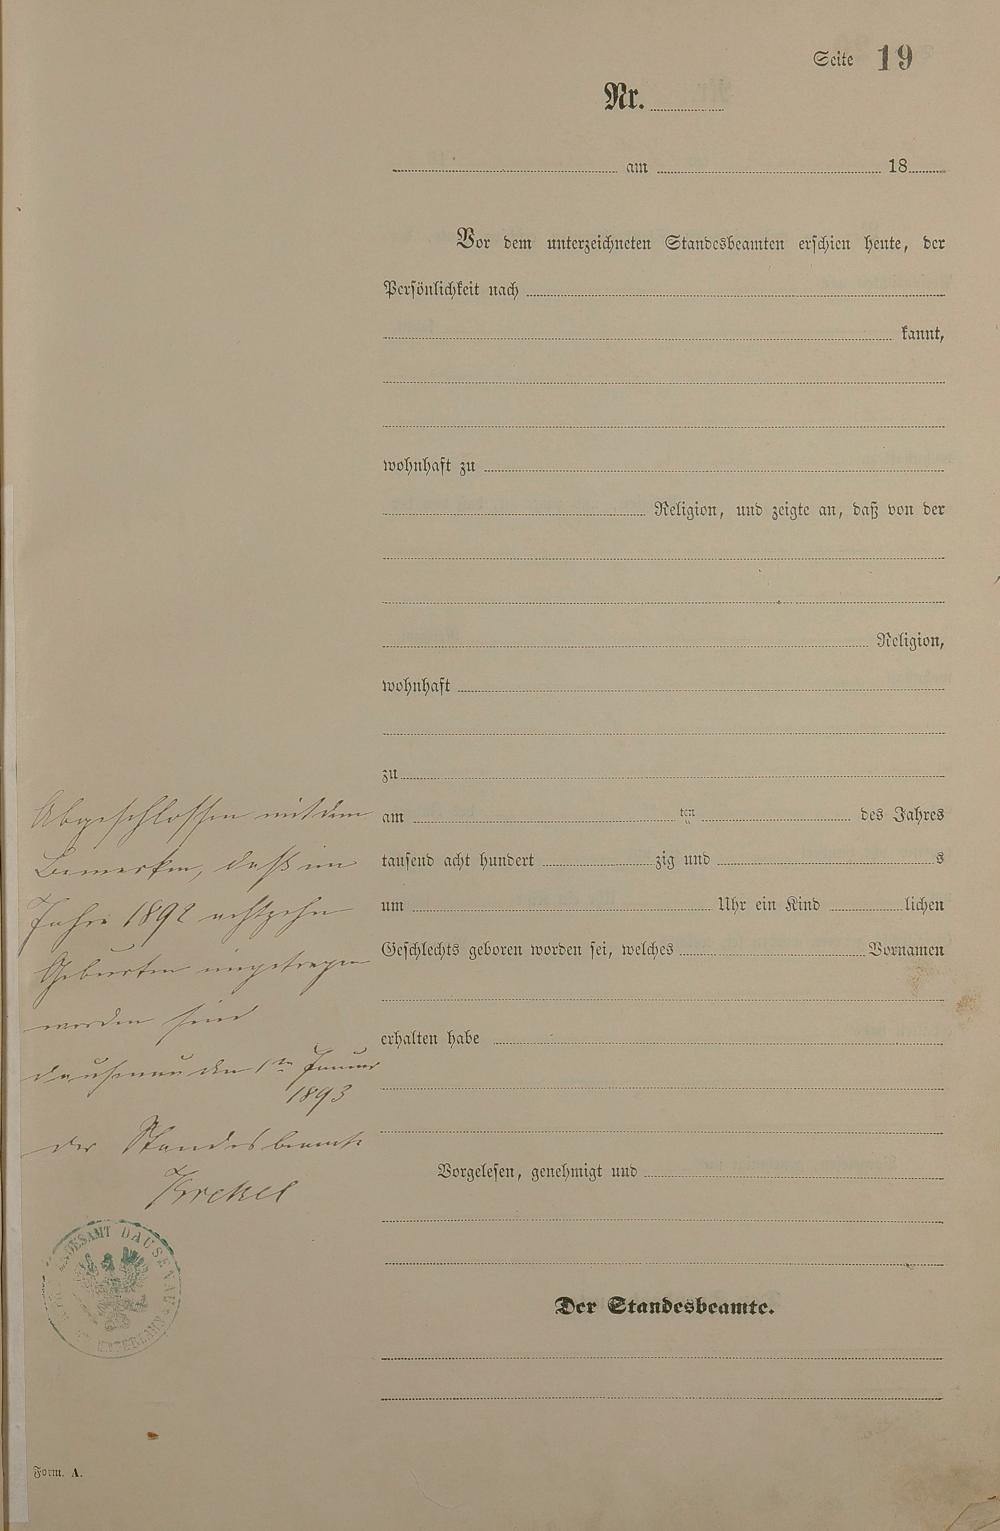 Seite 19
Nr.
am 18
Vor dem unterzeichneten Standesbeamten erschien heute, der
Persönlichkeit nach
kannt,
wohnhaft zu
Religion, und zeigte an, daß von der
Religion,
wohnhaft
zu
am ten des Jahres
tausend acht hundert zig und s
um Uhr ein Kind lichen
Geschlechts geboren worden sei, welches Vornamen
erhalten habe
Vorgelesen, genehmigt und
Der Standesbeamte.
Abgeschlossen mit dem
Bemerken, daß im
Jahre 1892 achtzehn
Geburten eingetragen
worden sind
Dausenau den 1ten Januar
1893
Der Standesbeamte
Krekel
STANDESAMT DAUSENAU
Form. A.